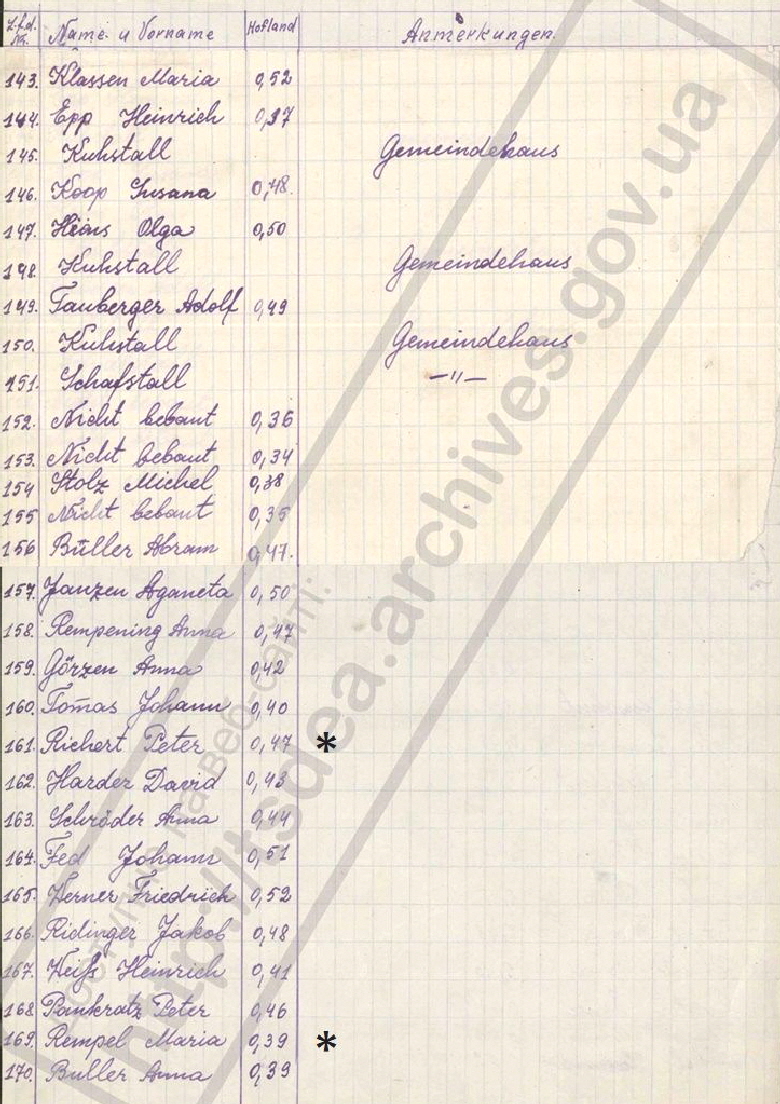 Lfd. Nr. Name u Vorname Hofland Anmerkungen
143. Klassen Maria 0,52
144. Epp Heinrich 0,37
145. Kuhstall Gemeindehaus
146. Koop Susana 0,48
147. Heins Olga 0,50
148. Kuhstall Gemeindehaus
149. Tauberger Adolf 0,49
150. Kuhstall Gemeindehaus
151. Schafstall —"—
152. Nicht bebaut 0,36
153. Nicht bebaut 0,34
154 Stolz Michel 0,38
155 Nicht bebaut 0,35
156 Büller Abram 0,47.
157. Janzen Aganeta 0,50
158. Rempening Anna 0,47
159. Görzen Anna 0,42
160. Tomas Johann 0,40
161. Richert Peter 0,47 *
162. Harder David 0,43
163. Schröder Anna 0,44
164. Fed Johann 0,51
165. Werner Friedrich 0,52
166. Ridinger Jakob 0,48
167. Weiß Heinrich 0,41
168. Pankratz Peter 0,46
169. Rempel Maria 0,39 *
170. Buller Anna 0,39
на веб-сайті:
http://tsdea.archives.gov.ua